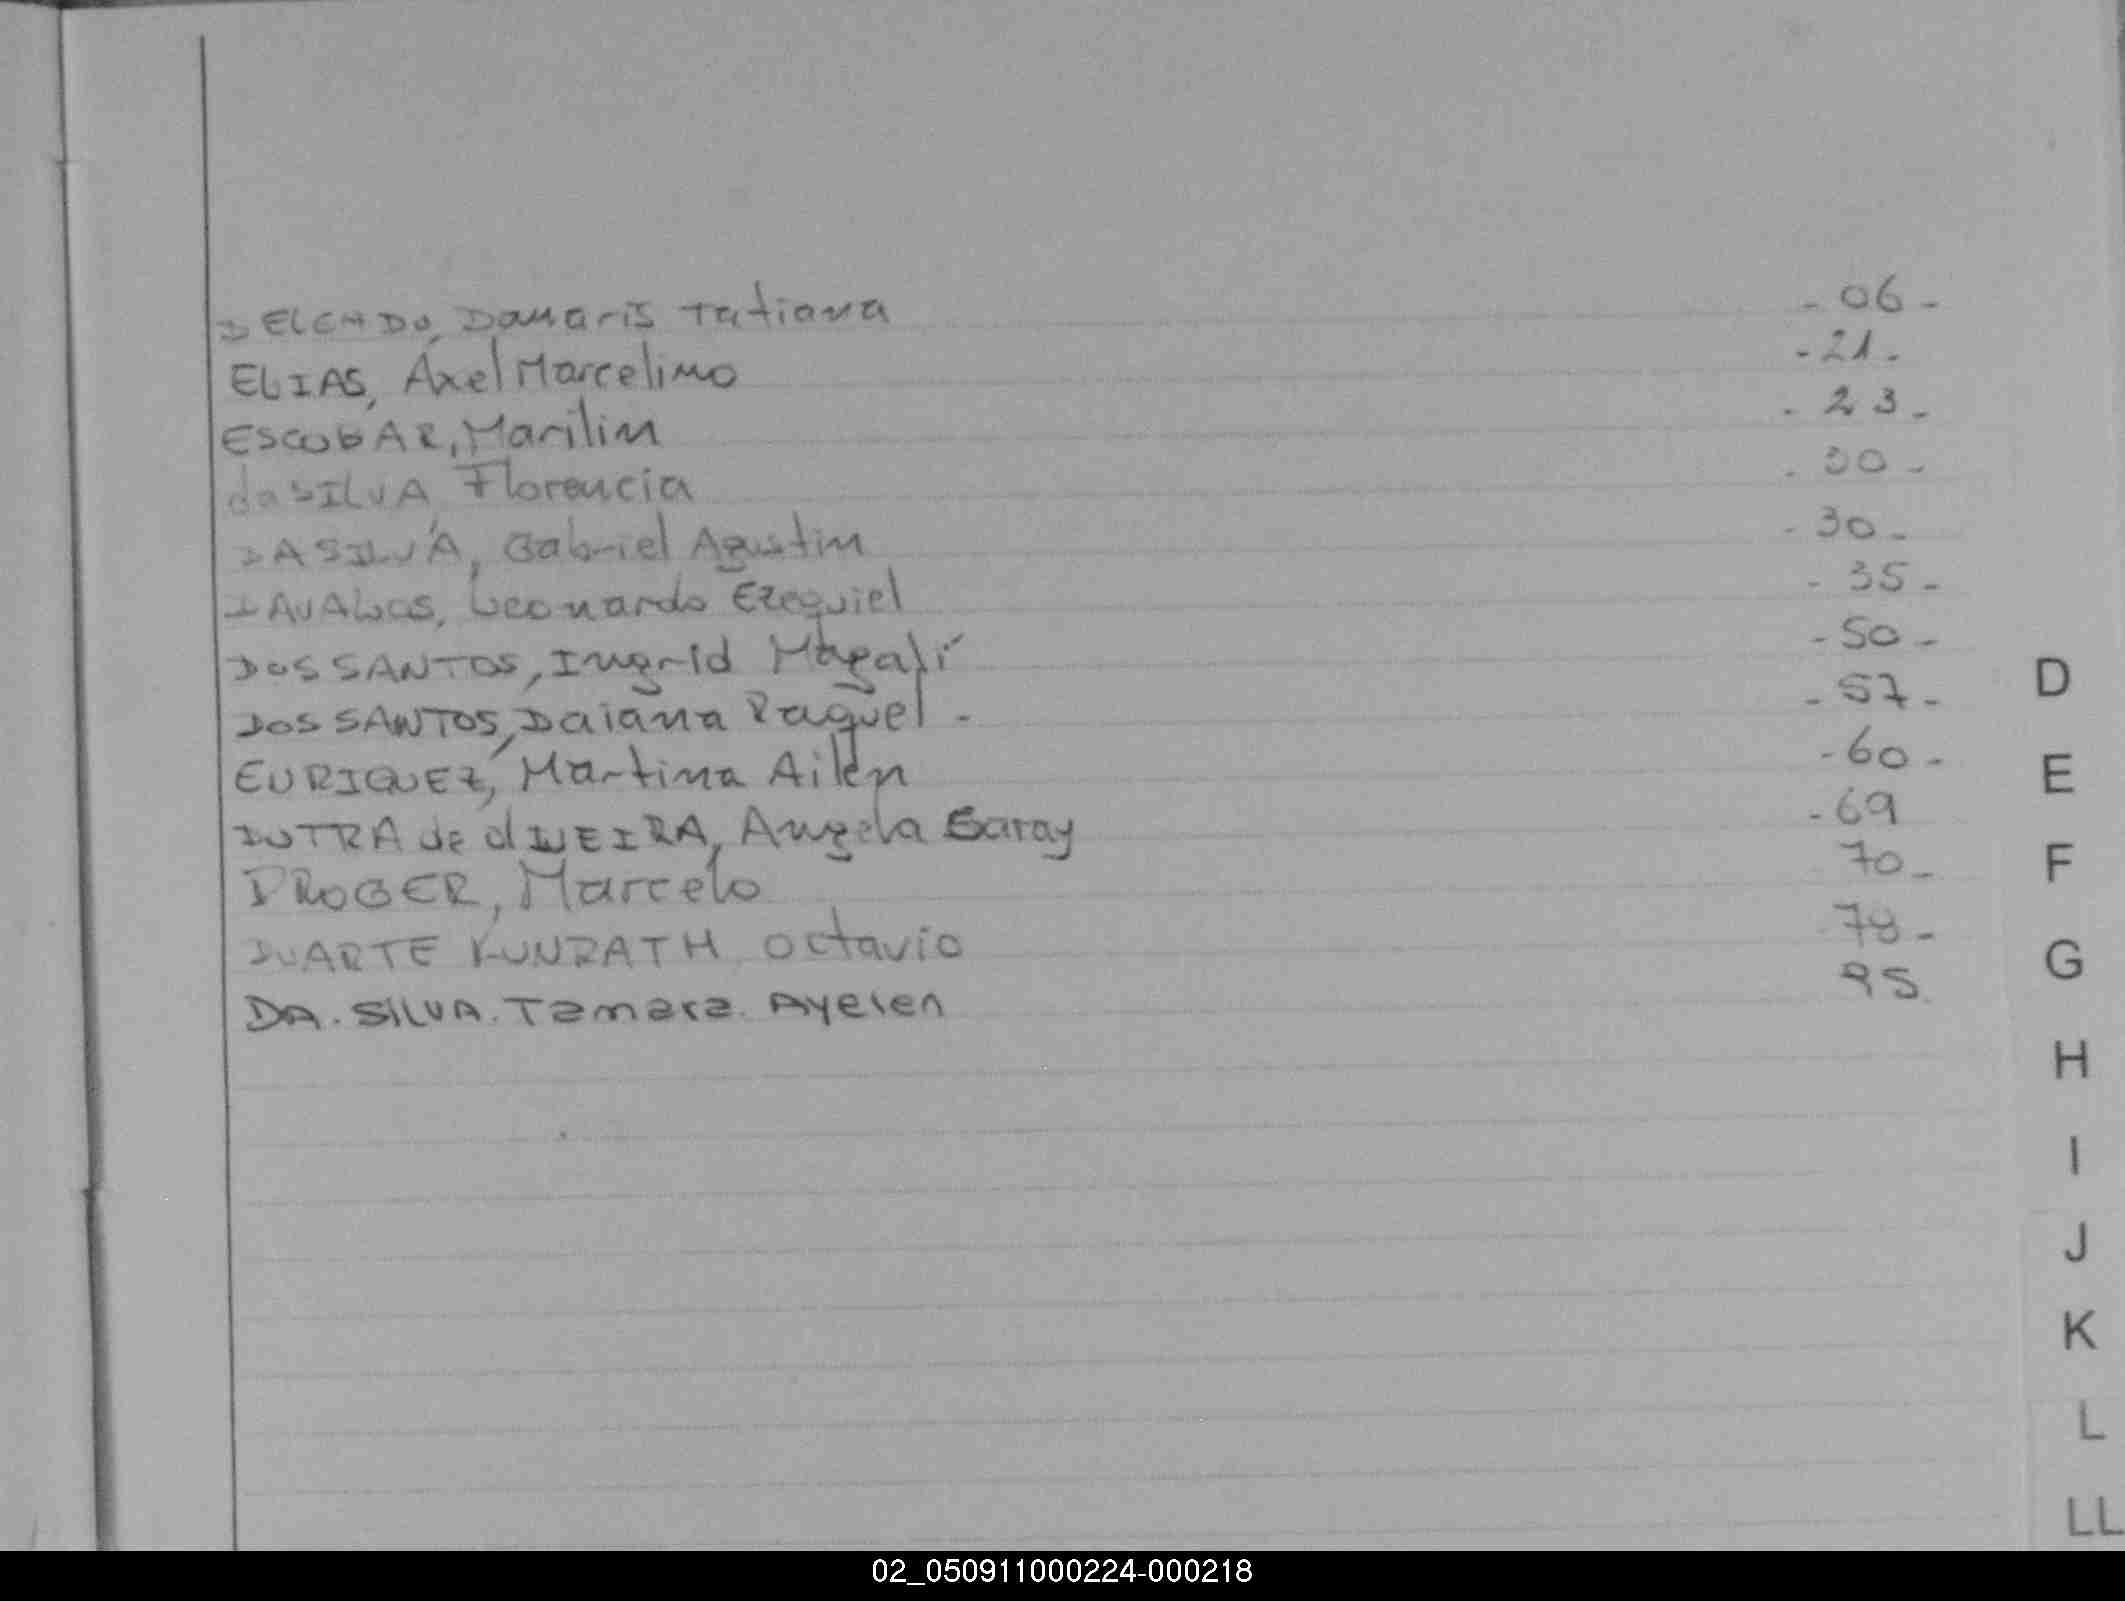 DELGADO, Damaris Tatiana - 06 -
ELIAS, Axel Marcelino - 21 -
ESCOBAR, Marilin - 23 -
da SILVA Florencia - 30 -
DA SILVA, Gabriel Agustin - 30 -
DAVALOS, Leonardo Ezequiel - 35 -
DOS SANTOS, Ingrid Magalí - 50 -
DOS SANTOS, Daiana Raquel - - 57 -
EURIQUEZ, Martina Ailén - 60 -
DUTRA de OLIVEIRA, Angela Saray - 69
DROGER, Marcelo 70 -
DUARTE KUNRATH Octavio 78 -
DA. SILVA. Tamara. Ayelen 95
D
E
F
G
H
I
J
K
L
LL
02_050911000224-000218